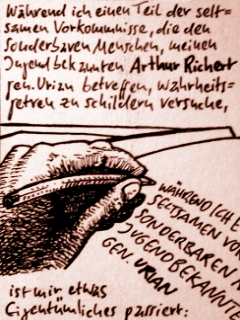 Während ich einen Teil der selt-
samen Vorkommnisse, die den
sonderbaren Menschen, meinen
Jugendbekannten Arthur Richert
gen. Urian betreffen, wahrheits-
getreu zu schildern versuche,
WÄHREND ICH E
SELTSAMEN VOR
SONDERBAREN M
JUGENDBEKANNTE
GEN. URIAN
ist mir etwas
Eigentümliches passiert: